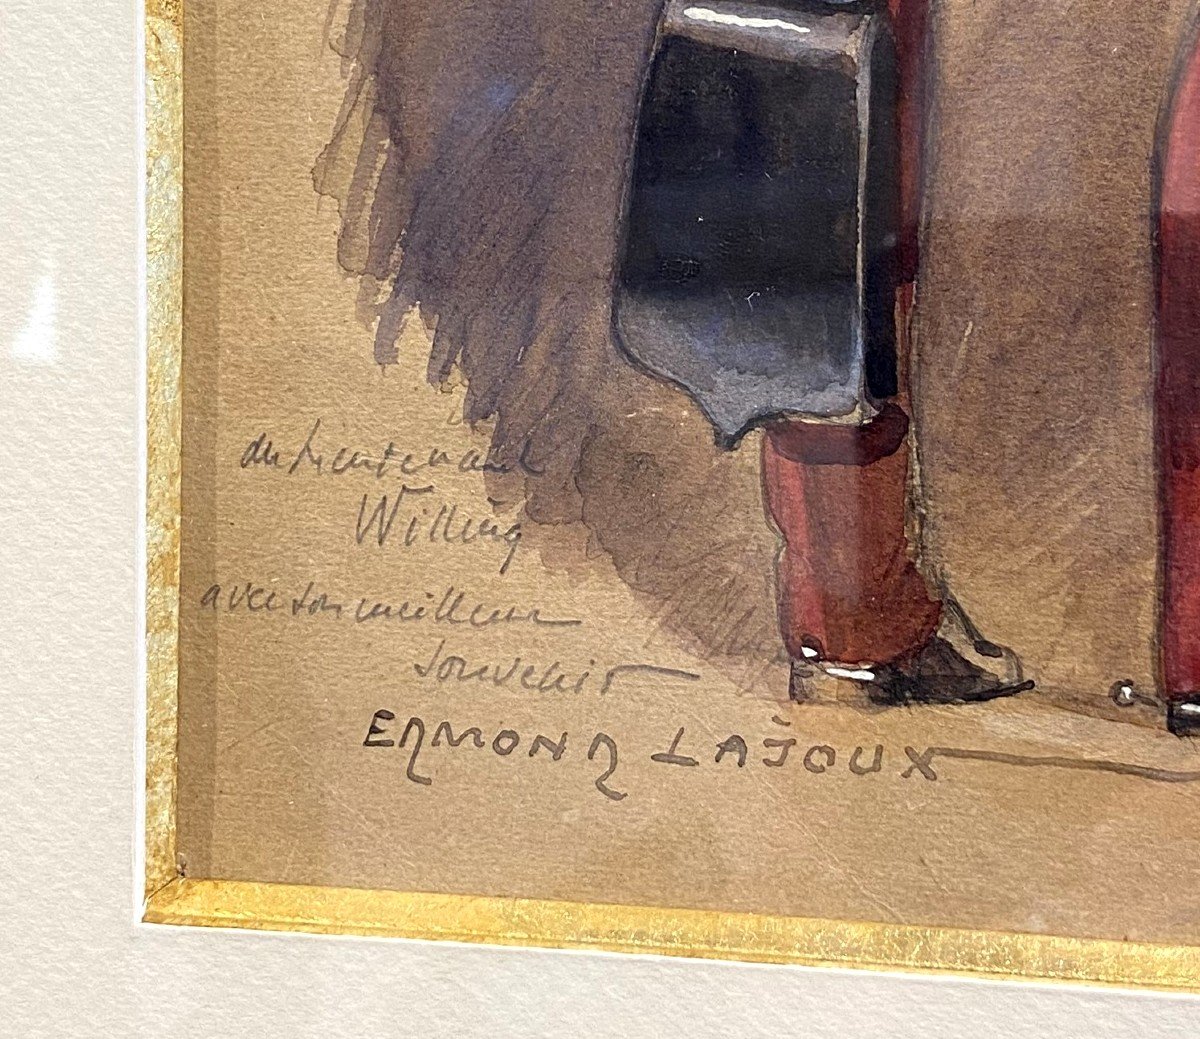 au Lieutenant
Willing
avec son meilleur
souvenir
EDMOND LAJOUX